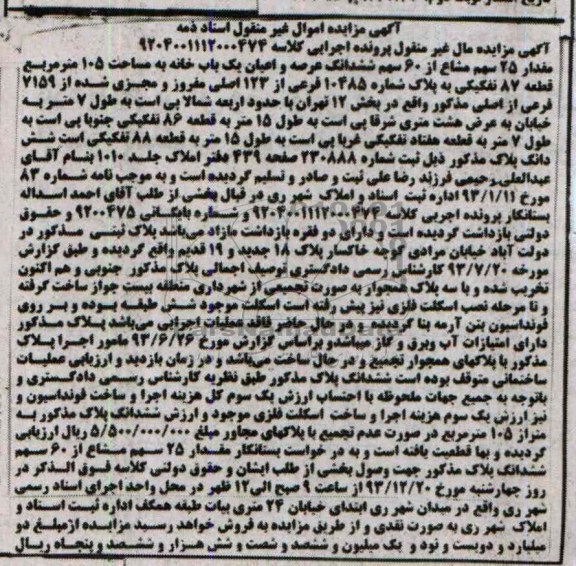 آگهی مزایده اموال غیر منقول اسناد ذمه
آگهی مزایده مال غیر منقول پرونده اجرایی کلاسه ۹۲۰۴۰۰۱۱۱۲۰۰۰۴۷۴
مقدار ۲۵ سهم مشاع از ۶۰ سهم ششدانگ عرصه و اعیان یک باب خانه به مساحت ۱۰۵ مترمربع
قطعه ۸۷ تفکیکی به پلاک شماره ۱۰۴۸۵ فرعی از ۱۲۳ اصلی مفروز و مجزی شده از ۷۱۵۹
فرعی از اصلی مذکور واقع در بخش ۱۲ تهران با حدود اربعه شمالا پی است به طول ۷ متر به
خیابان به عرض هشت متری شرقا پی است به طول ۱۵ متر به قطعه ۸۶ تفکیکی جنوبا پی است به
طول ۷ متر به قطعه هفتاد تفکیکی غربا پی است به طول ۱۵ متر به قطعه ۸۸ تفکیکی است شش
دانگ پلاک مذکور ذیل ثبت شماره ۲۳۰۸۸۸ صفحه ۴۳۹ دفتر املاک جلد ۱۰۱۰ بنام آقای
عبدالعلی رحیمی فرزند رضا علی ثبت و صادر و تسلیم گردیده است و به موجب نامه شماره ۸۳
مورخ ۹۳/۱/۱۱ اداره ثبت اسناد و املاک شهر ری در قبال بخشی از طلب آقای احمد اسداله
بستانکار پرونده اجریی کلاسه ۹۲۰۴۰۰۱۱۱۲۰۰۰۴۷۴ و شماره بایگانی ۹۲۰۰۴۷۵ و حقوق
دولتی بازداشت گردیده است و دارای دو فقره بازداشت مازاد می‌باشد پلاک ثبتی مذکور در
دولت آباد خیابان مرادی کوچه خاکسار پلاک ۱۸ جدید و ۱۹ قدیم واقع گردیده و طبق گزارش
مورخه ۹۳/۷/۲۰ کارشناس رسمی دادگستری توصیف اجمالی پلاک مذکور جنوبی و هم اکنون
تخریب شده و با سه پلاک همجوار به صورت تجمیعی از شهرداری منطقه بیست جواز ساخت گرفته
و تا مرحله نصب اسکلت فلزی نیز پیش رفته است اسکلت موجود شش طبقه بوده و بر روی
فونداسیون بتن آرمه بنا گردیده و در حال حاضر فاقد عملیات اجرایی می‌باشد پلاک مذکور
دارای امتیازات آب وبرق و گاز میباشدو براساس گزارش مورخ ۹۳/۶/۲۶ مامور اجرا پلاک
مذکور با پلاکهای همجوار تجمیع و در حال ساخت می‌باشد و در زمان بازدید و ارزیابی عملیات
ساختمانی متوقف بوده است ششدانگ پلاک مذکور طبق نظریه کارشناس رسمی دادگستری و
باتوجه به جمیع جهات ملحوظه با احتساب ارزش یک سوم کل هزینه اجرا و ساخت فونداسیون و
نیز ارزش یک سوم هزینه اجرا و ساخت اسکلت فلزی موجود و ارزش ششدانگ پلاک مذکور به
متراژ ۱۰۵ مترمربع در صورت عدم تجمیع با پلاکهای مجاور مبلغ ۵/۵۰۰/۰۰۰/۰۰۰ ریال ارزیابی
گردیده و بها قطعیت یافته است و به در خواست بستانکار مقدار ۲۵ سهم مشاع از ۶۰ سهم
ششدانگ پلاک مذکور جهت وصول بخشی از طلب ایشان و حقوق دولتی کلاسه فوق الذکر در
روز چهارشنبه مورخ ۹۳/۱۲/۲۰ از ساعت ۹ صبح الی۱۲ ظهر در محل واحد اجرای اسناد رسمی
شهر ری واقع در میدان شهر ری ابتدای خیابان ۲۴ متری بیات طبقه همکف اداره ثبت اسناد و
املاک شهر ری به صورت نقدی و از طریق مزایده به فروش خواهد رسید مزایده ازمبلغ دو
میلیارد و دویست و نود و یک میلیون و ششصد و شصت و شش هزار و ششصد و پنجاه ریال